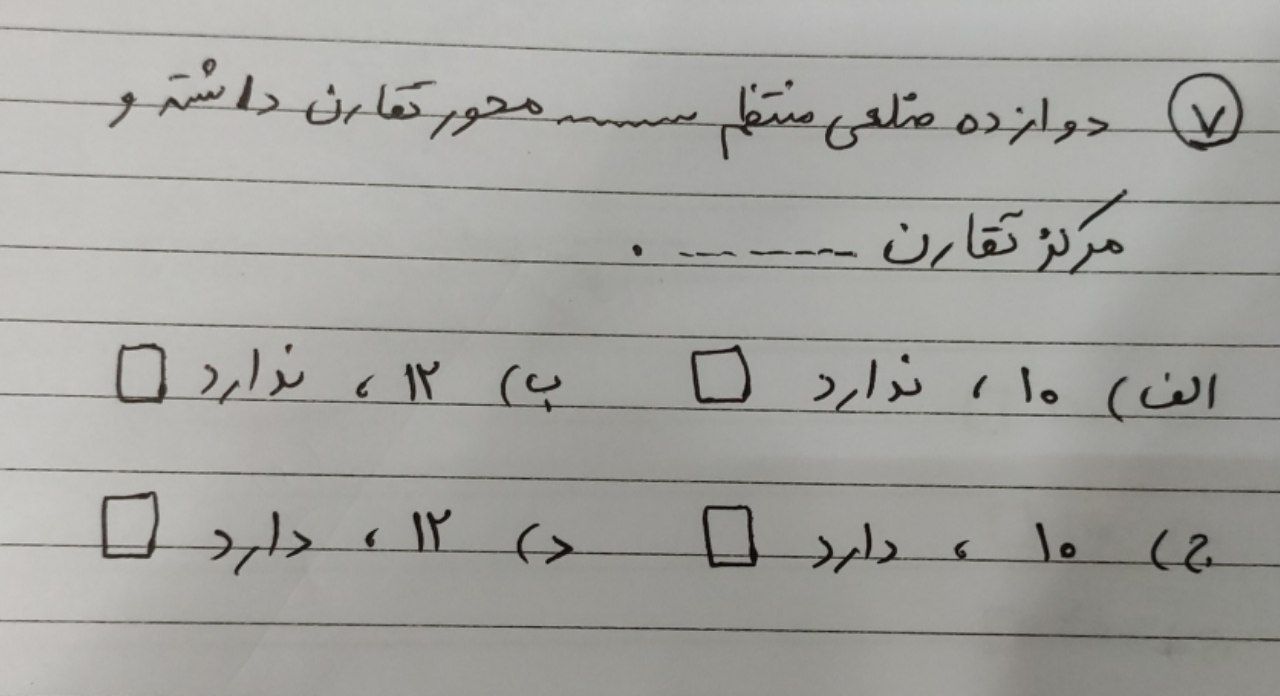 ۷ دوازده ضلعی منتظم ........ محور تقارن داشته و
مرکز تقارن -------- .
الف) ۱۰ ، ندارد □ ب) ۱۲ ، ندارد □
ج) ۱۰ ، دارد □ د) ۱۲ ، دارد □